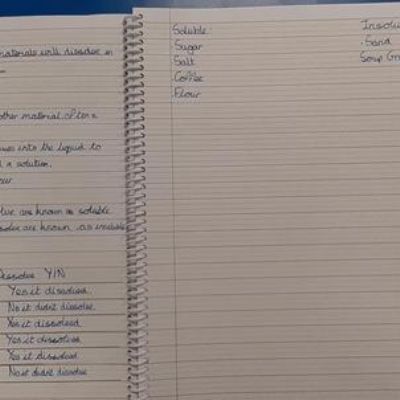 materials will dissolve in
other material often a
into the liquid to
a solution.
are known as soluble
are known as insoluble
Dissolve Y/N
Yes it dissolved.
No it didnt dissolve.
Yes it dissolved
Yes it dissolved
Yes it dissolved
No it didnt dissolve
Soluble:
.Sugar
Salt
.Coffee
.Flour
Insolu
.Sand
Soup Gr